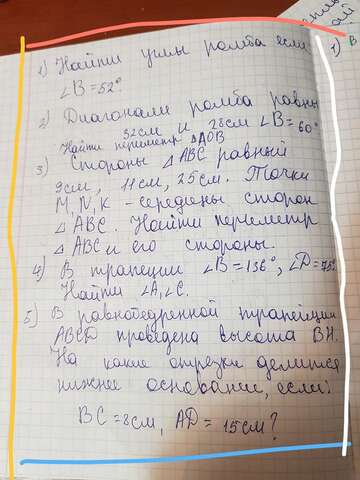 1) Найти углы ромба если
∠B=52°
2) Диагонали ромба равны
32см и 28см ∠B=60°
Найти периметр △AOB
3) Стороны △ABC равный
9см, 11см, 25см. Точки
M, N, K - середины сторон
△ABC. Найти периметр
△ABC и его стороны.
4) В трапеции ∠B=136°, ∠D=75°
Найти ∠A, ∠C.
5) В равнобедренной трапеции
ABCD проведена высота BH.
На какие отрезки делится
нижнее основание, если:
BC=8см, AD=15см?
1) В